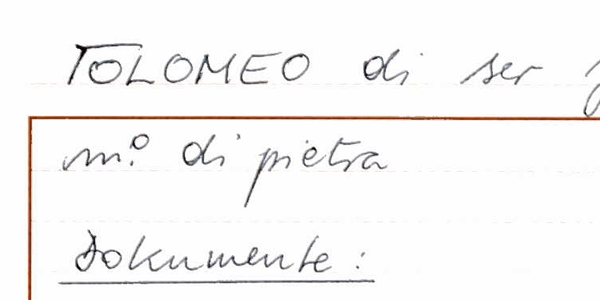 TOLOMEO di ser
m.º di pietra
Dokumente: